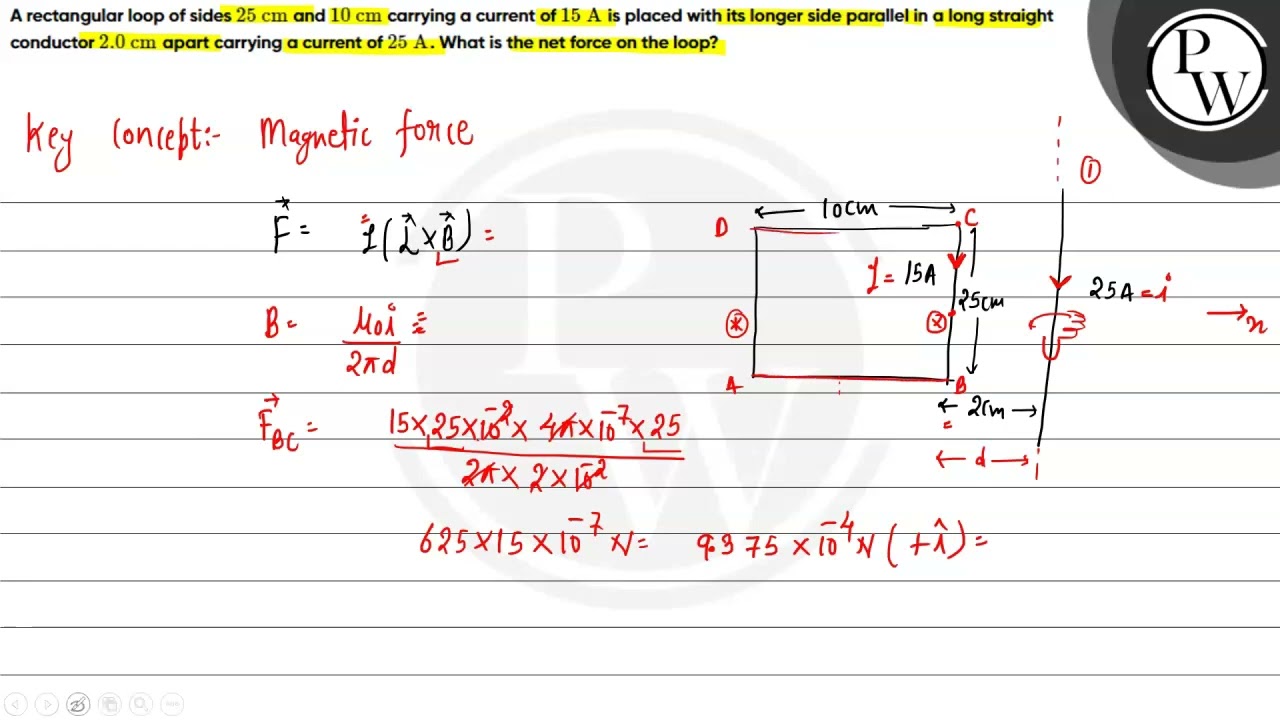 A rectangular loop of sides 25 cm and 10 cm carrying a current of 15 A is placed with its longer side parallel in a long straight
conductor 2.0 cm apart carrying a current of 25 A. What is the net force on the loop?
PW
Key Concept:- Magnetic force
F⃗ = I(L⃗ × B⃗) =
B = μ₀i / 2πd
F⃗BC = 15×25×10⁻²×4π×10⁻⁷×25 / 2π×2×10⁻²
625×15×10⁻⁷ N = 9.375×10⁻⁴ N (+î) =
①
D
10cm
C
I = 15A
25cm
25A = i
x
ⓧ
ⓧ
A
B
2cm
d